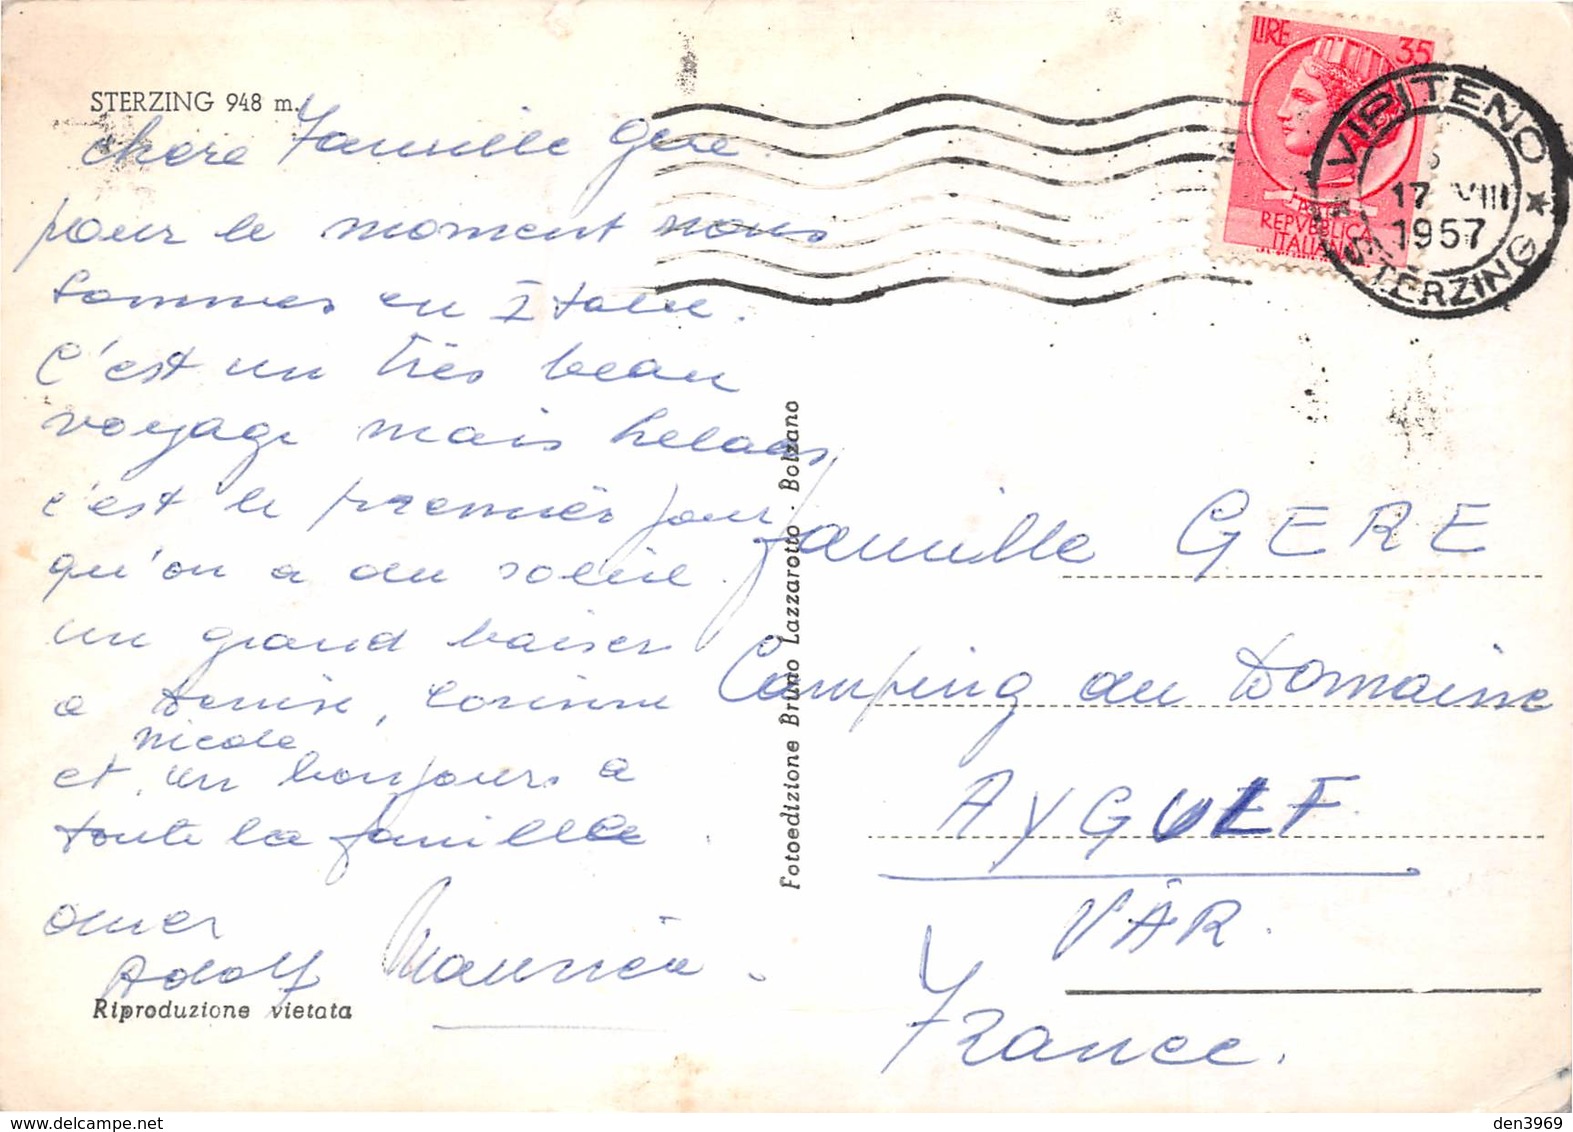 STERZING 948 m.
chere Famille Gere
pour le moment nous
sommes en Italie.
C'est un très beau
voyage mais helaas
c'est le premier jour
qu'on a du soleil.
un grand baiser
a Denise, Corinne
nicole
et un bonjours a
toute la famille.
omer
Adolf Maurice.
Riproduzione vietata
Fotoedizione Bruno Lazzarotto - Bolzano
LIRE 35
REPVBBLICA
ITALIANA
VIPITENO
17 VIII
1957
STERZING
famille GERE
Camping du Domaine
AYGULF
VAR.
France.
den3969